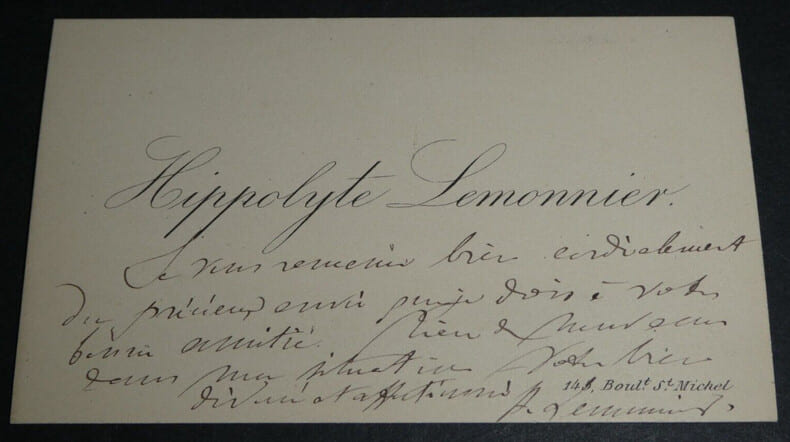 Hippolyte Lemonnier.
Je vous remercie bien cordialement
du précieux envoi que je dois à votre
bonne amitié. Rien de nouveau
dans ma situation Votre bien
148, Boulᵗ Sᵗ Michel
dévoué et affectionné H. Lemonnier.